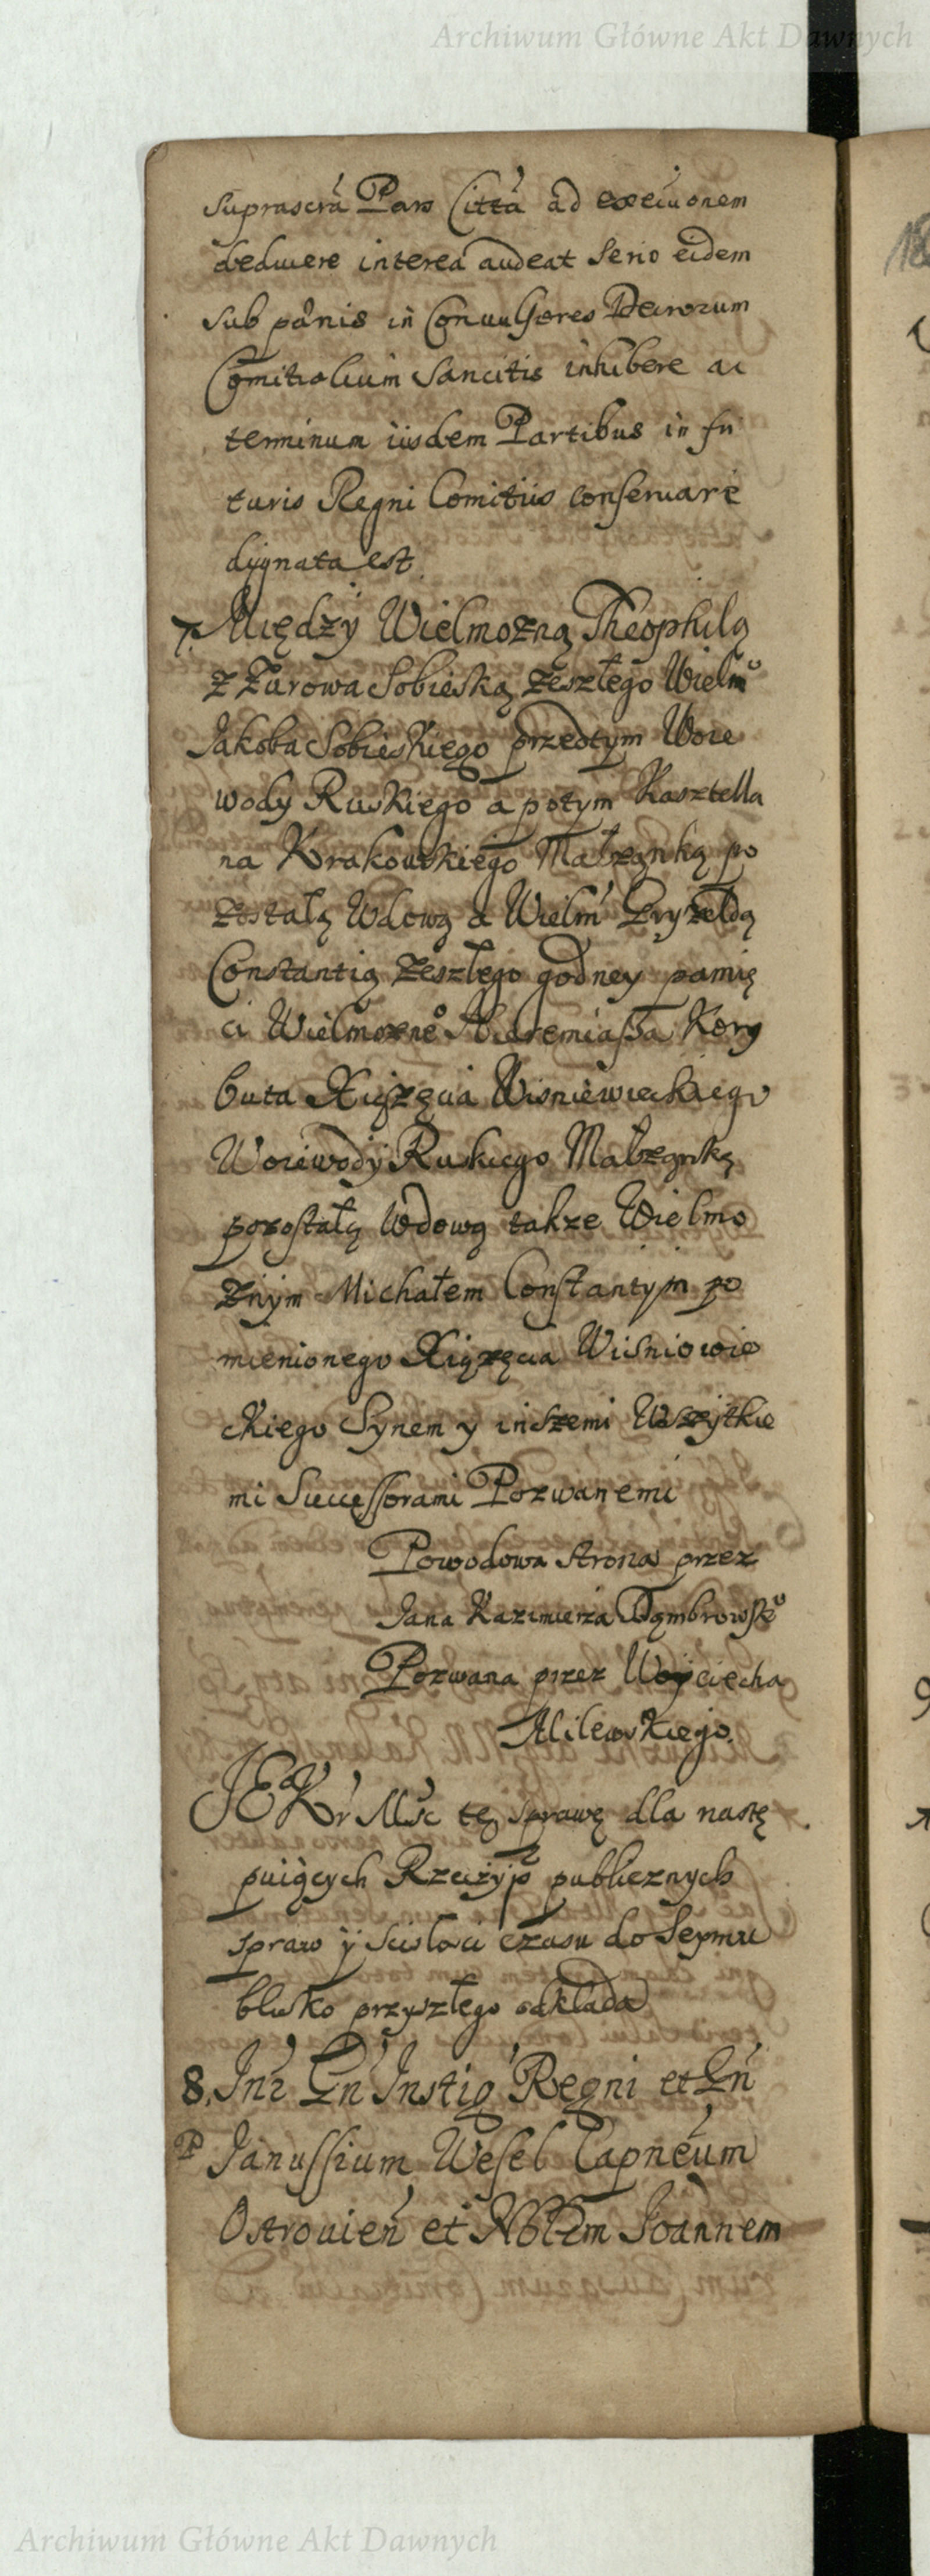 Archiwum Główne Akt Dawnych
suprascra Pars Citta ad execuonem
deducere interea audeat serio eidem
sub pænis in Convulsores Decretorum
Comitialium sancitis inhibere ac
terminum iisdem Partibus in fu
turis Regni Comitiis conservare
dignata est.
7. Między Wielmozną Theophilą
z Zurowa Sobieską zeszłego Wielmo
Jakoba Sobieskiego przedtym Woie
wody Ruskiego a potym Kasztella
na Krakowskiego Małząnką po
zostałą Wdową a Wielm Gryzeldą
Constantią zeszłego godney pamię
ci Wielmozneo Hieremiassa Kory
buta Xiązęcia Wisniewieckiego
Woiewody Ruskiego Małząnką
pozostałą Wdową takze Wielmo
znym Michałem Constantym po
mienionego Xiązęcia Wisniowie
ckiego Synem y inszemi Wszytkie
mi Successorami Pozwanemi
Powodowa strona przez
Jana Kazimierza Dąmbrowskо
Pozwana przez Woyciecha
Milewskiego.
JEo Kr Msc tę sprawę dla nastę
puiących Rzeczyp publicznych
spraw y scisłosci czasu do Seymu
blisko przyszłego odkłada
8. Inr Gn Instig Regni et Gn
P Janussium Wesel Capneum
Ostrovien et Noblem Joannem
Archiwum Główne Akt Dawnych